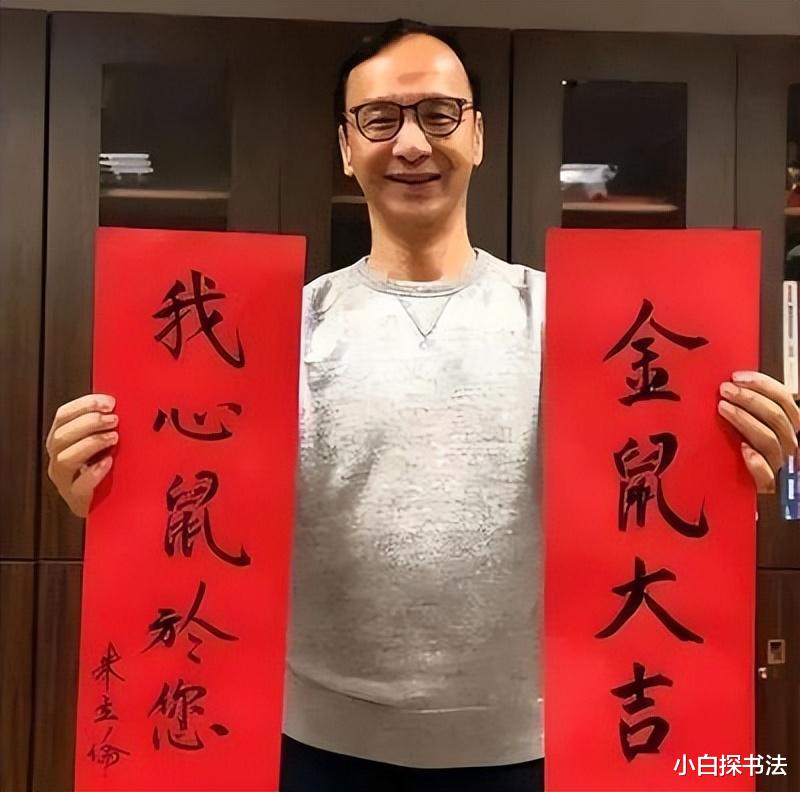 金鼠大吉
我心鼠於您
朱立倫
小白探书法